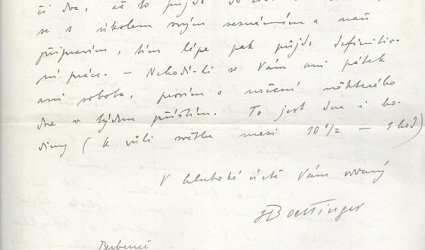 či dva, až to půjde do
se s úkolem svým seznámím a nač
připravím, tím lépe pak půjde definitiv-
ní práce. – Nehodí-li se Vám ani pátek
ani sobota, prosím o určení některého
dne v týdnu příštím. To jest dne i ho-
diny (k vůli světlu mezi 10 ½ – 1 hod)
V hluboké úctě Vám oddaný
HBoettinger
Bubeneč